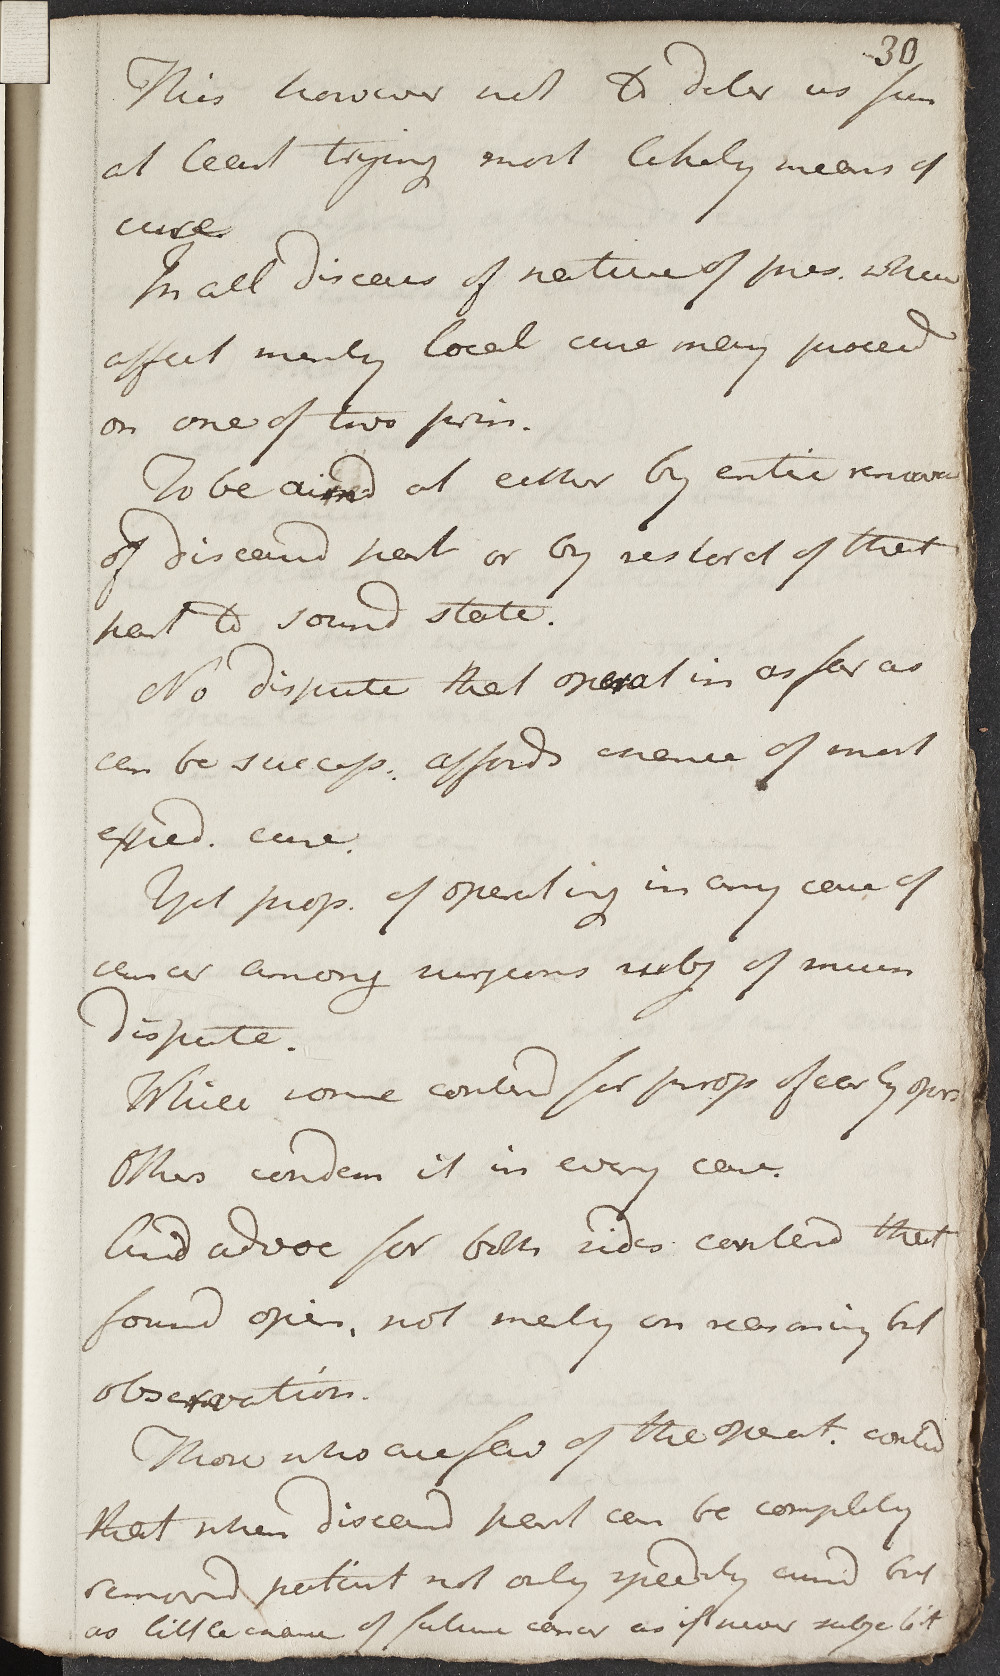 30
This however not to deter us from
at least trying most likely means of
cure.
In all diseases of nature of pres. when
affect merely local cure may proceed
on one of two prin.
To be aimd at either by entire remova
of diseased part or by restorat of that
part to sound state.
No dispute that operat in as far as
can be success. affords chance of most
exped. cure.
Yet prop. of operating in any case of
cancer among surgeons subj of much
dispute.
While some contend for prop of early oper
Others condem it in every case.
And advoc for both sides contend that
found opin. not merely on reasoning but
observation.
Those who are fav of the operat. contend
that when diseased part can be completely
removed patient not only speedily cured but
as little chance of future cancer as if never subject to it